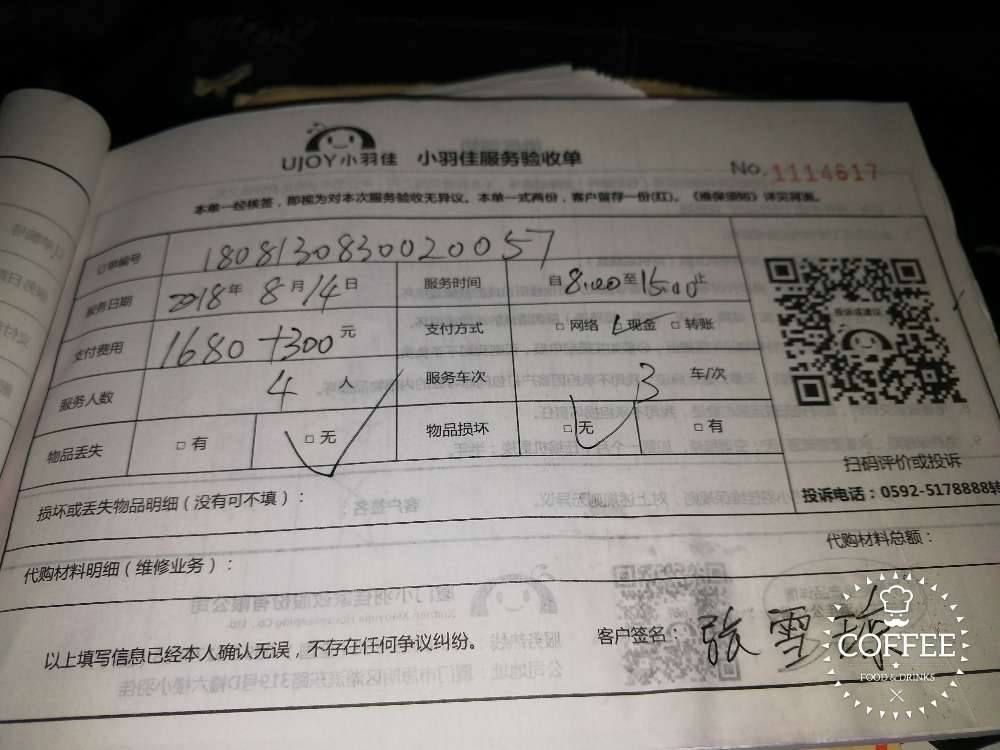 UJOY小羽佳 小羽佳服务验收单
No. 1114617
本单一经核签，即视为对本次服务验收无异议。本单一式两份，客户留存一份(红)。《维保须知》详见背面。
订单编号 1808130830020057
服务日期 2018年 8月14日 服务时间 自8:00至15:00止
支付费用 1680+300元 支付方式 □网络 □现金 □转账
服务人数 4人 服务车次 3车/次
物品丢失 □有 □无 物品损坏 □无 □有
投诉或建议
扫码评价或投诉
投诉电话：0592-5178888转
损坏或丢失物品明细（没有可不填）：
代购材料明细（维修业务）：
代购材料总额：
以上填写信息已经本人确认无误，不存在任何争议纠纷。
客户签名：张雪
COFFEE
FOOD & DRINKS